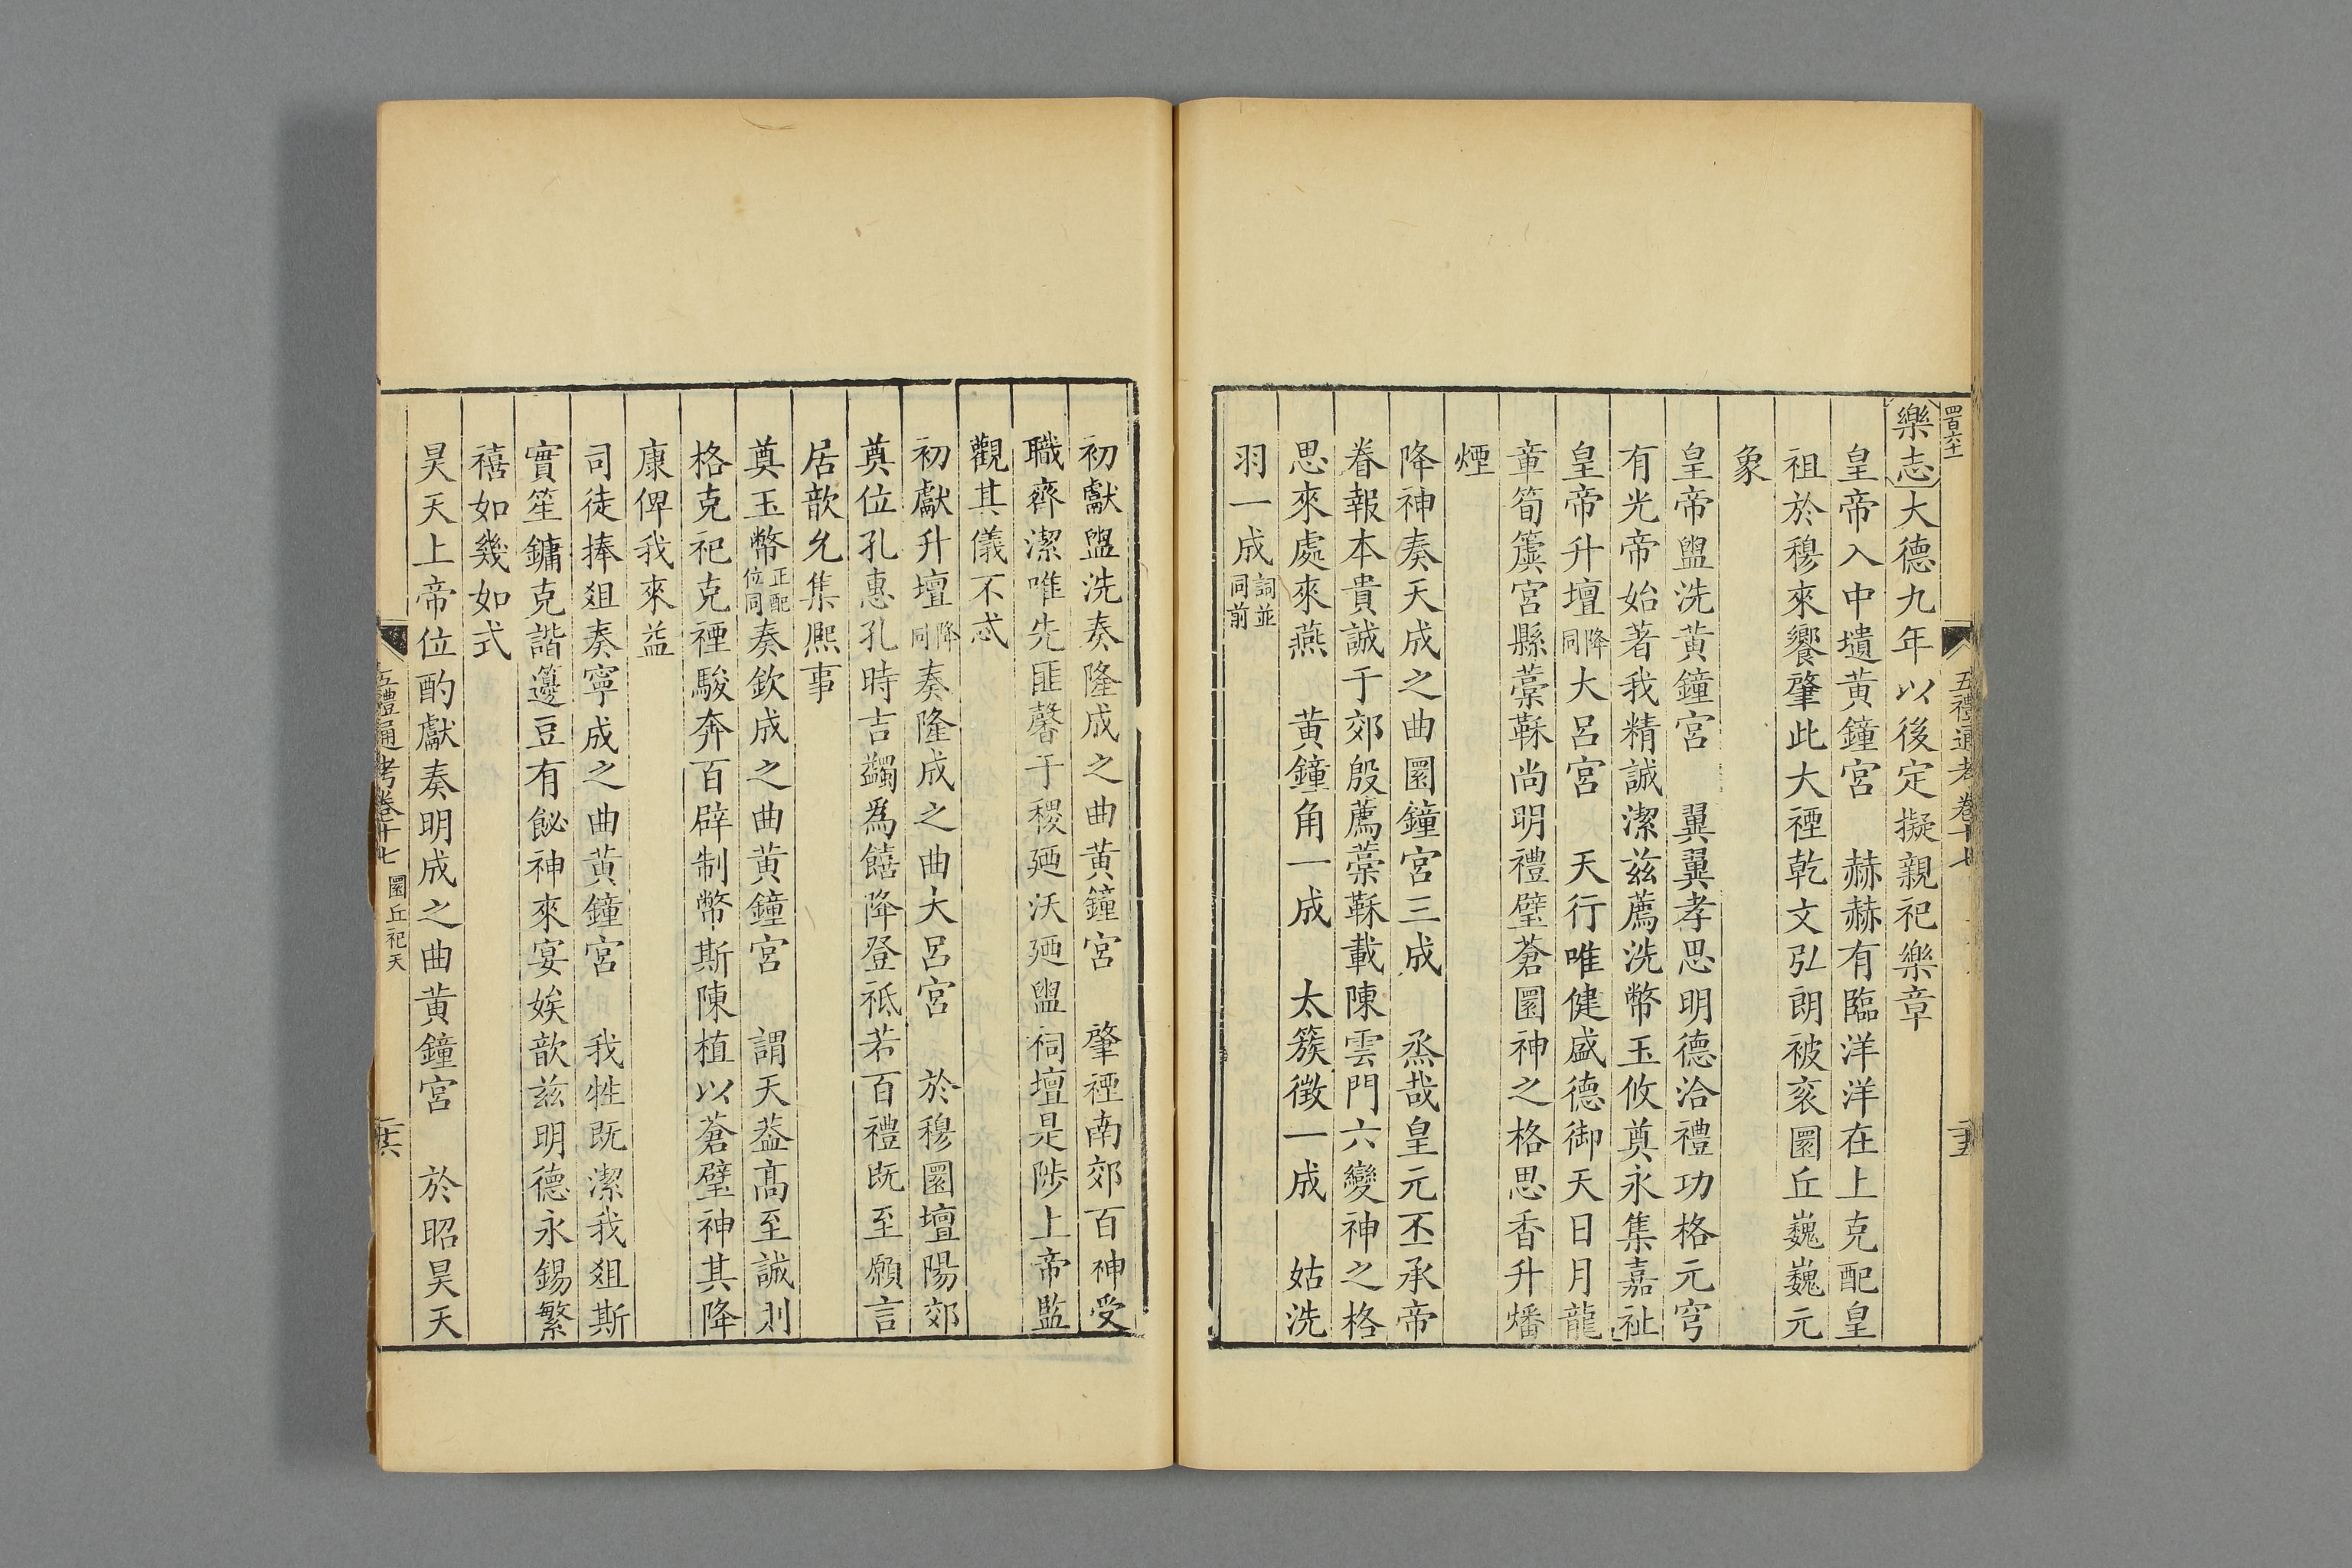 四百六十一
五禮通考卷十七
二十五
樂志大德九年以後定擬親祀樂章
皇帝入中壝黃鐘宮　赫赫有臨洋洋在上克配皇
祖於穆來饗肇此大禋乾文弘朗被衮圜丘巍巍元
象
皇帝盥洗黃鐘宮　翼翼孝思明德洽禮功格元穹
有光帝始著我精誠潔兹薦洗幣玉攸奠永集嘉祉
皇帝升壇降同大呂宮　天行唯健盛德御天日月龍
章筍簴宮縣藁鞂尚明禮璧蒼圜神之格思香升燔
煙
降神奏天成之曲圜鐘宮三成　烝哉皇元丕承帝
眷報本貴誠于郊殷薦藁鞂載陳雲門六變神之格
思來處來燕　黃鐘角一成　太簇徵一成　姑洗
羽一成詞並同前
初獻盥洗奏隆成之曲黃鐘宮　肇禋南郊百神受
職齊潔唯先匪馨于稷廼沃廼盥祠壇是陟上帝監
觀其儀不忒
初獻升壇降同奏隆成之曲大呂宮　於穆圜壇陽郊
奠位孔惠孔時吉蠲爲饎降登祗若百禮既至願言
居歆允集熈事
奠玉幣正配位同奏欽成之曲黃鐘宮　謂天葢高至誠則
格克祀克禋駿奔百辟制幣斯陳植以蒼璧神其降
康俾我來益
司徒捧俎奏寧成之曲黃鐘宮　我牲既潔我俎斯
實笙鏞克諧籩豆有飶神來宴娭歆兹明德永錫繁
禧如幾如式
昊天上帝位酌獻奏明成之曲黃鐘宮　於昭昊天
五禮通考卷十七　圜丘祀天
二十六